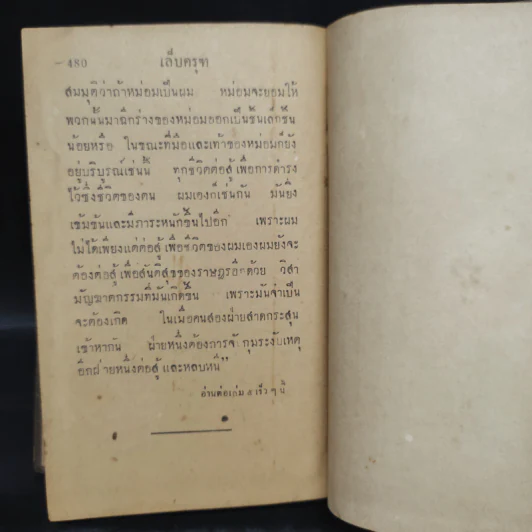 - 480
เล็บครุฑ
สมมุติว่าถ้าหม่อมเป็นผม หม่อมจะยอมให้
พวกนั้นมาฉีกร่างของหม่อมออกเป็นชิ้นเล็กชิ้น
น้อยหรือ ในขณะที่มือและเท้าของหม่อมก็ยัง
อยู่บริบูรณ์เช่นนี้ ทุกชีวิตต่อสู้เพื่อการดำรง
ไว้ซึ่งชีวิตของตน ผมเองก็เช่นกัน มันยิ่ง
เข้มข้นและมีภาระหนักขึ้นไปอีก เพราะผม
ไม่ได้เพียงแต่ต่อสู้เพื่อชีวิตของผมเองผมยังจะ
ต้องต่อสู้เพื่อสันติสุขของราษฎรอีกด้วย วิสา
มัญฆาตกรรมที่มันเกิดขึ้น เพราะมันจำเป็น
จะต้องเกิด ในเมื่อคนสองฝ่ายสาดกระสุน
เข้าหากัน ฝ่ายหนึ่งต้องการจับกุมระงับเหตุ
อีกฝ่ายหนึ่งต่อสู้และหลบหนี"
อ่านต่อเล่ม เร็ว ๆ นี้